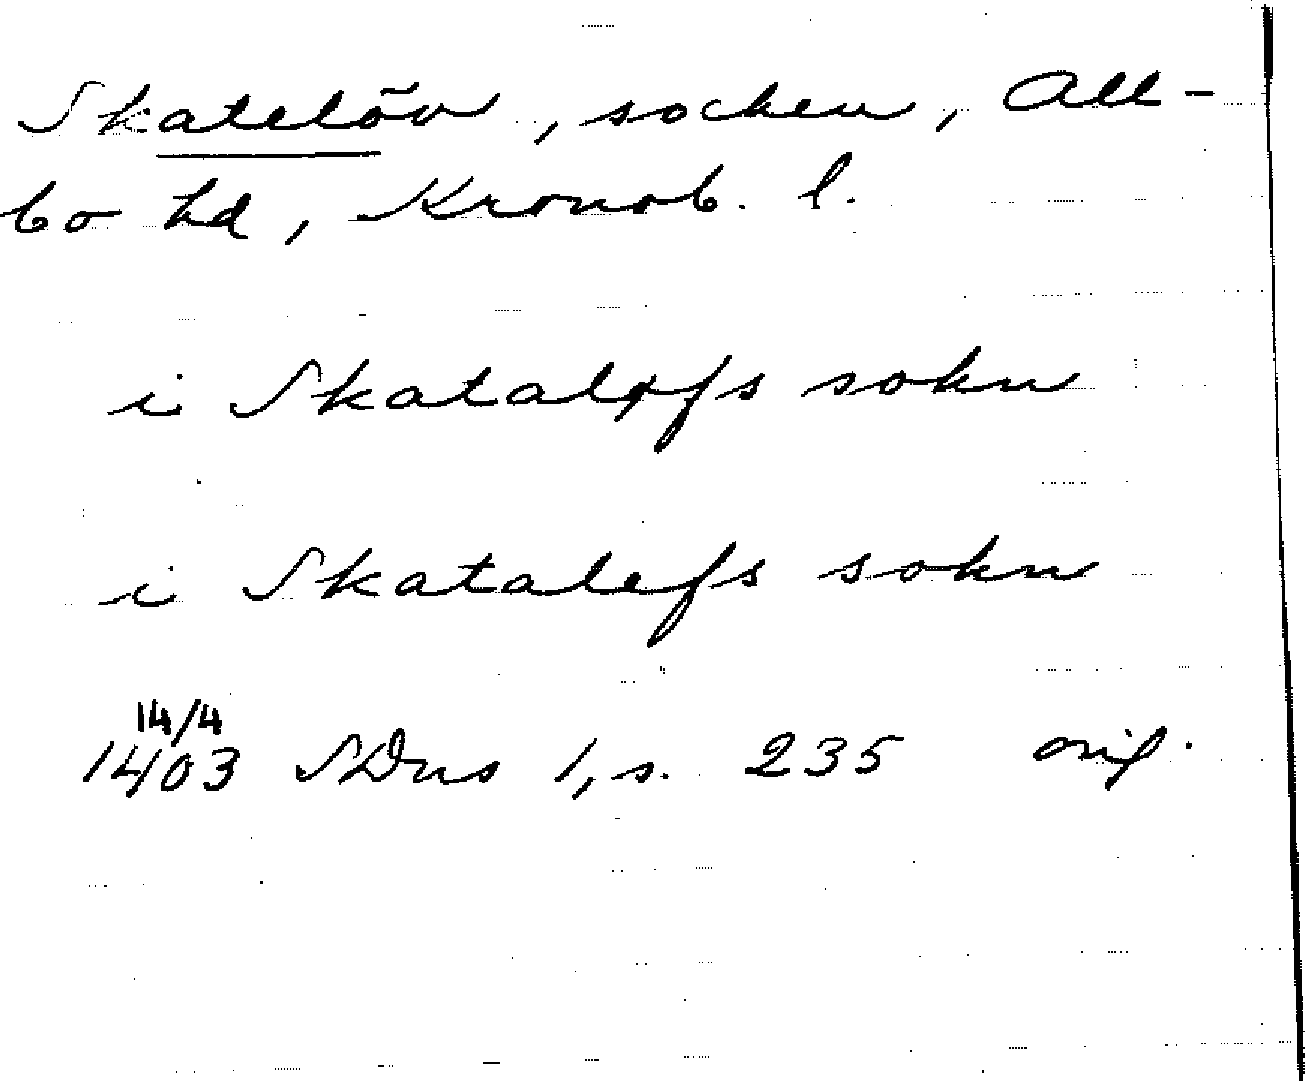 Skatelöv, socken, All-
bo hd, Kronob. l.
i Skataløfs sokn
i Skatalefs sokn
14/4
1403 SDns 1, s. 235 orig.